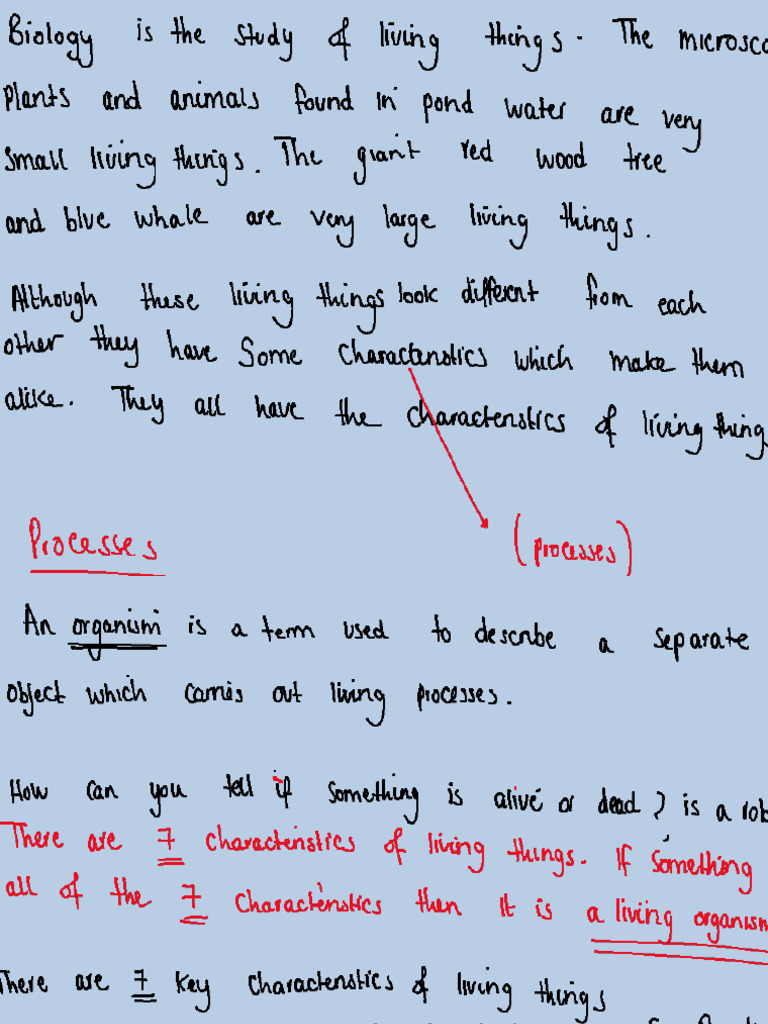 Biology is the study of living things. The microsco
plants and animals found in pond water are very
small living things. The giant red wood tree
and blue whale are very large living things.
Although these living things look different from each
other they have some characteristics which make them
alike. They all have the characteristics of living thing
Processes
(processes)
An organism is a term used to describe a separate
object which carries out living processes.
How can you tell if something is alive or dead? is a rob
There are 7 characteristics of living things. If something
all of the 7 characteristics then it is a living organism
There are 7 key characteristics of living things